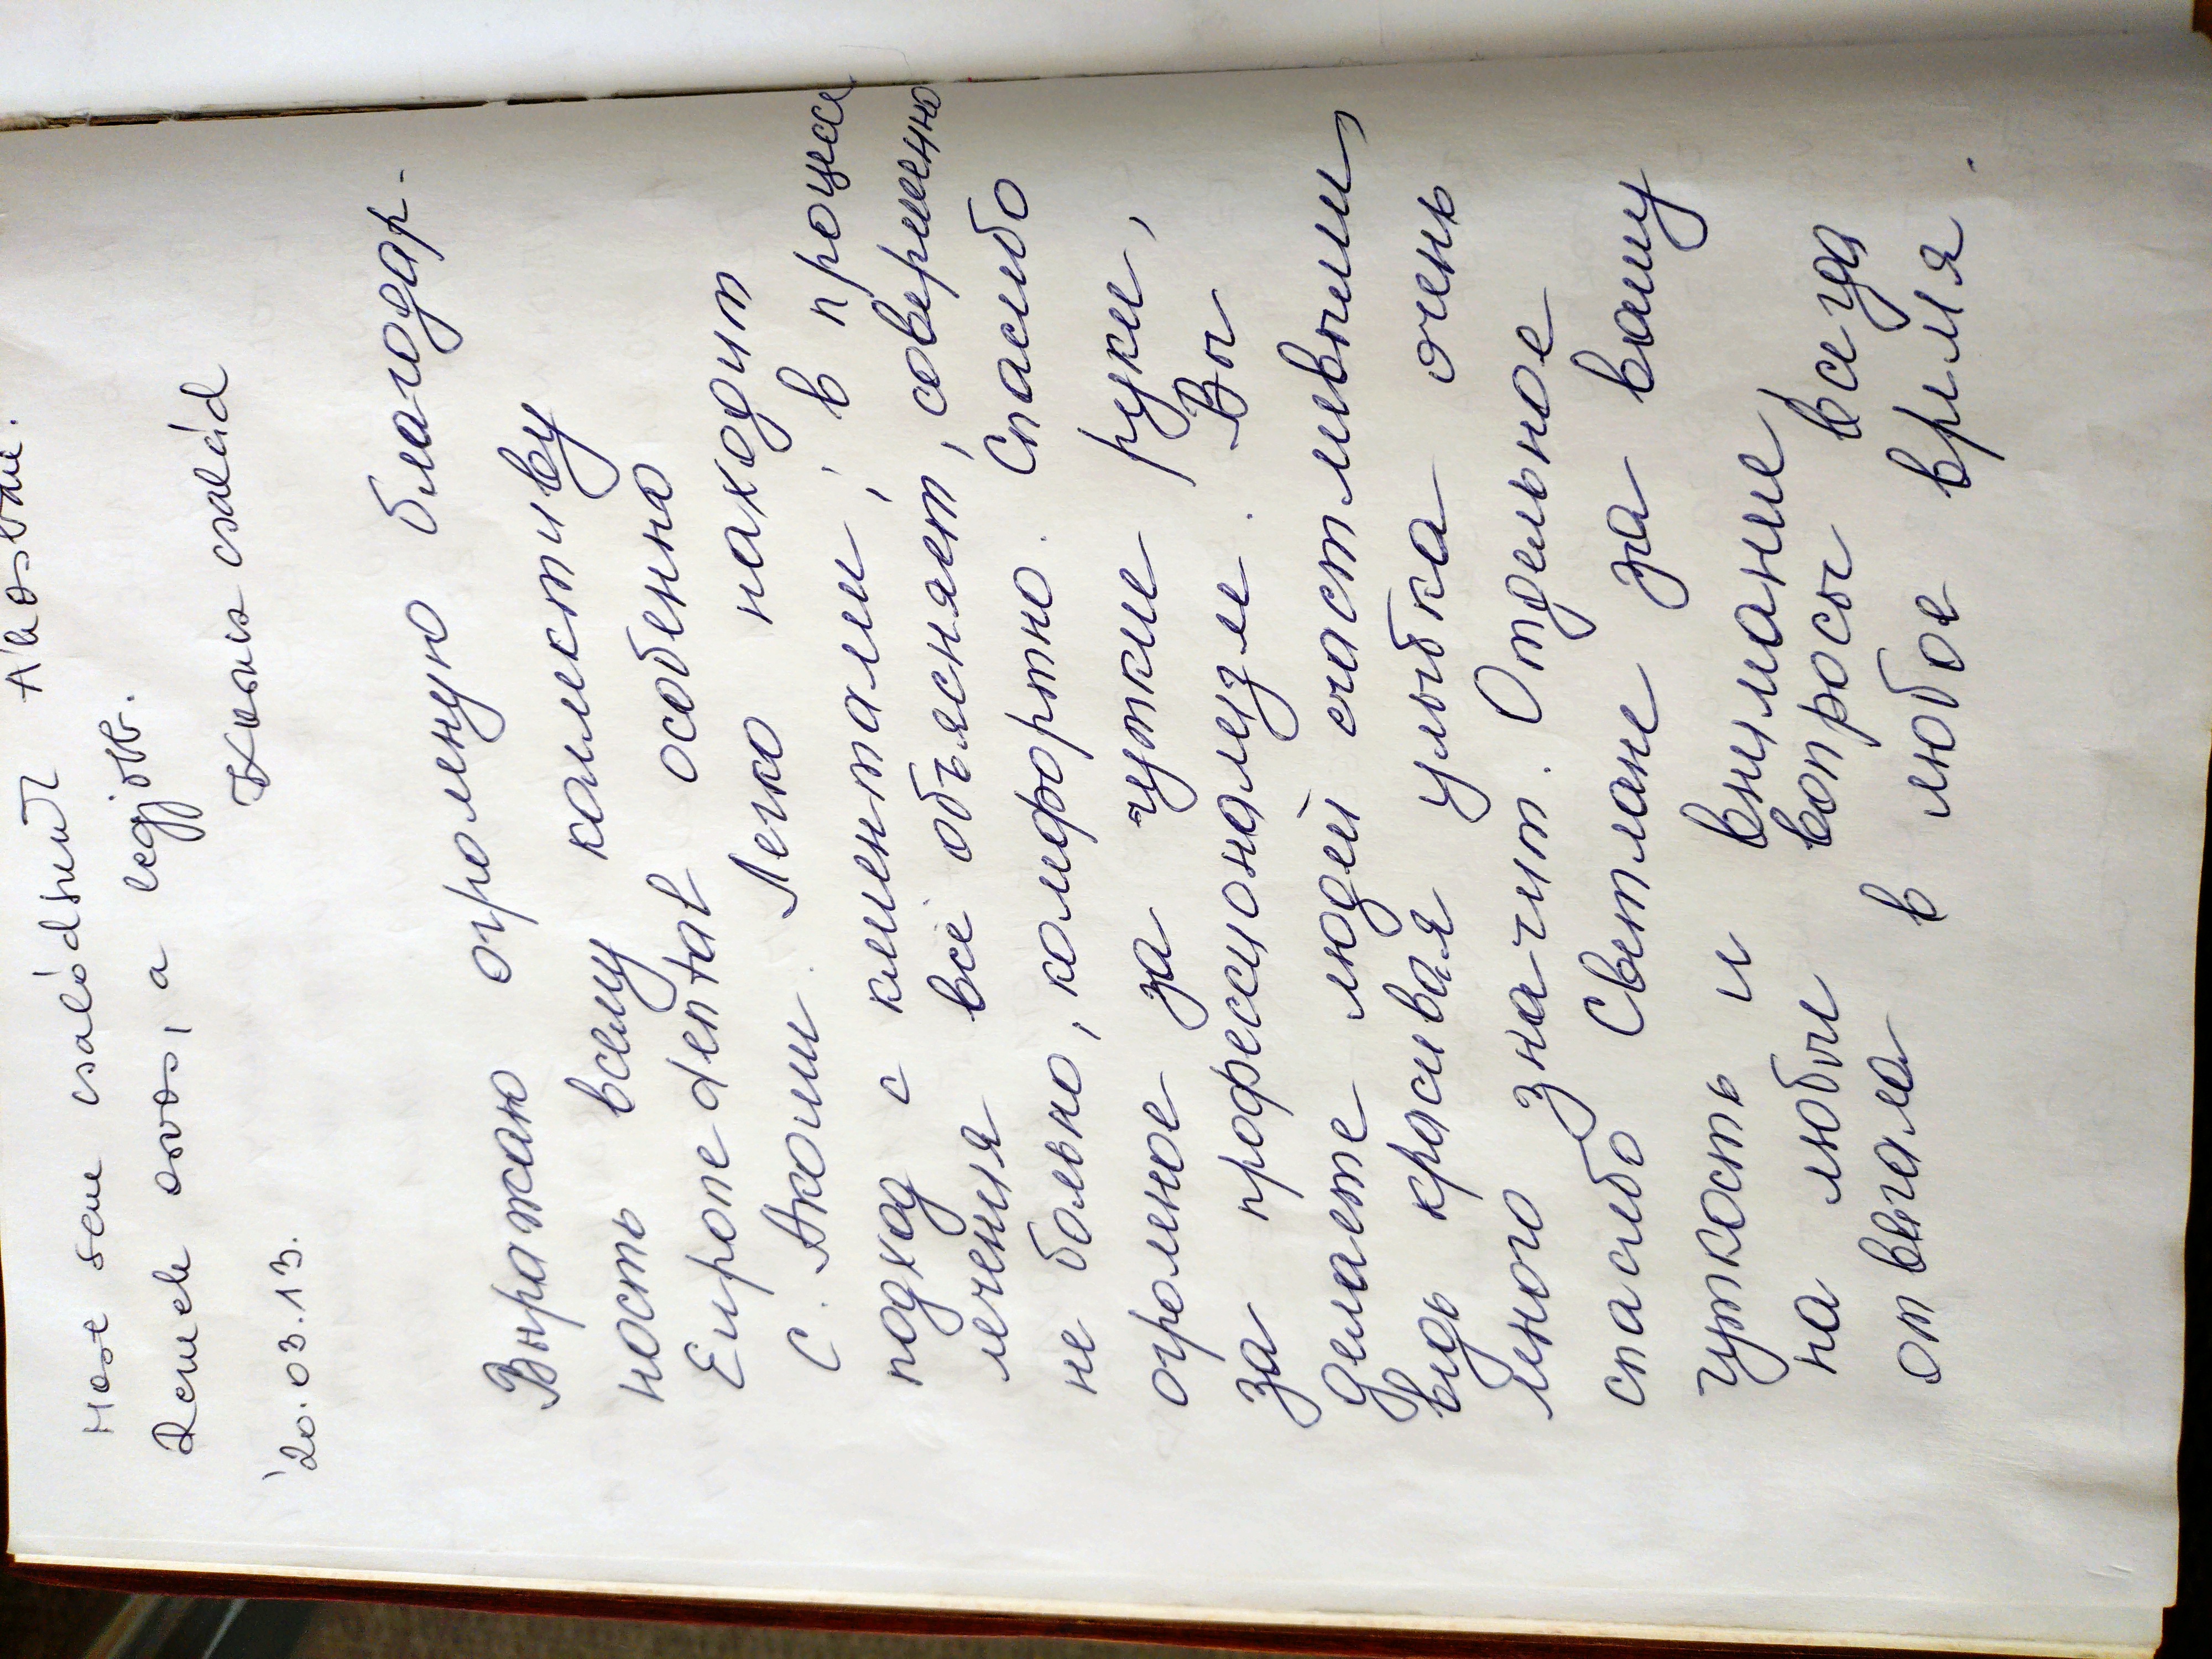 Most sem családtunk
Remek orvos, a legjobb.
család
'20.03.13.
Выражаю огромную благодар-
ность всему коллективу
Европе dental особенно
С. Акоши. Легко находит
подход с клиентами, в процесс
лечения всё объясняет, совершенно
не больно, комфортно. Спасибо
огромное за чуткие руки,
за професионализм. Вы
делаете людей счастливыми
ведь красивая улыбка очень
много значит. Отдельное
спасибо Светлане за вашу
чуткость и внимание
на любые вопросы всегда
отвечала в любое время.